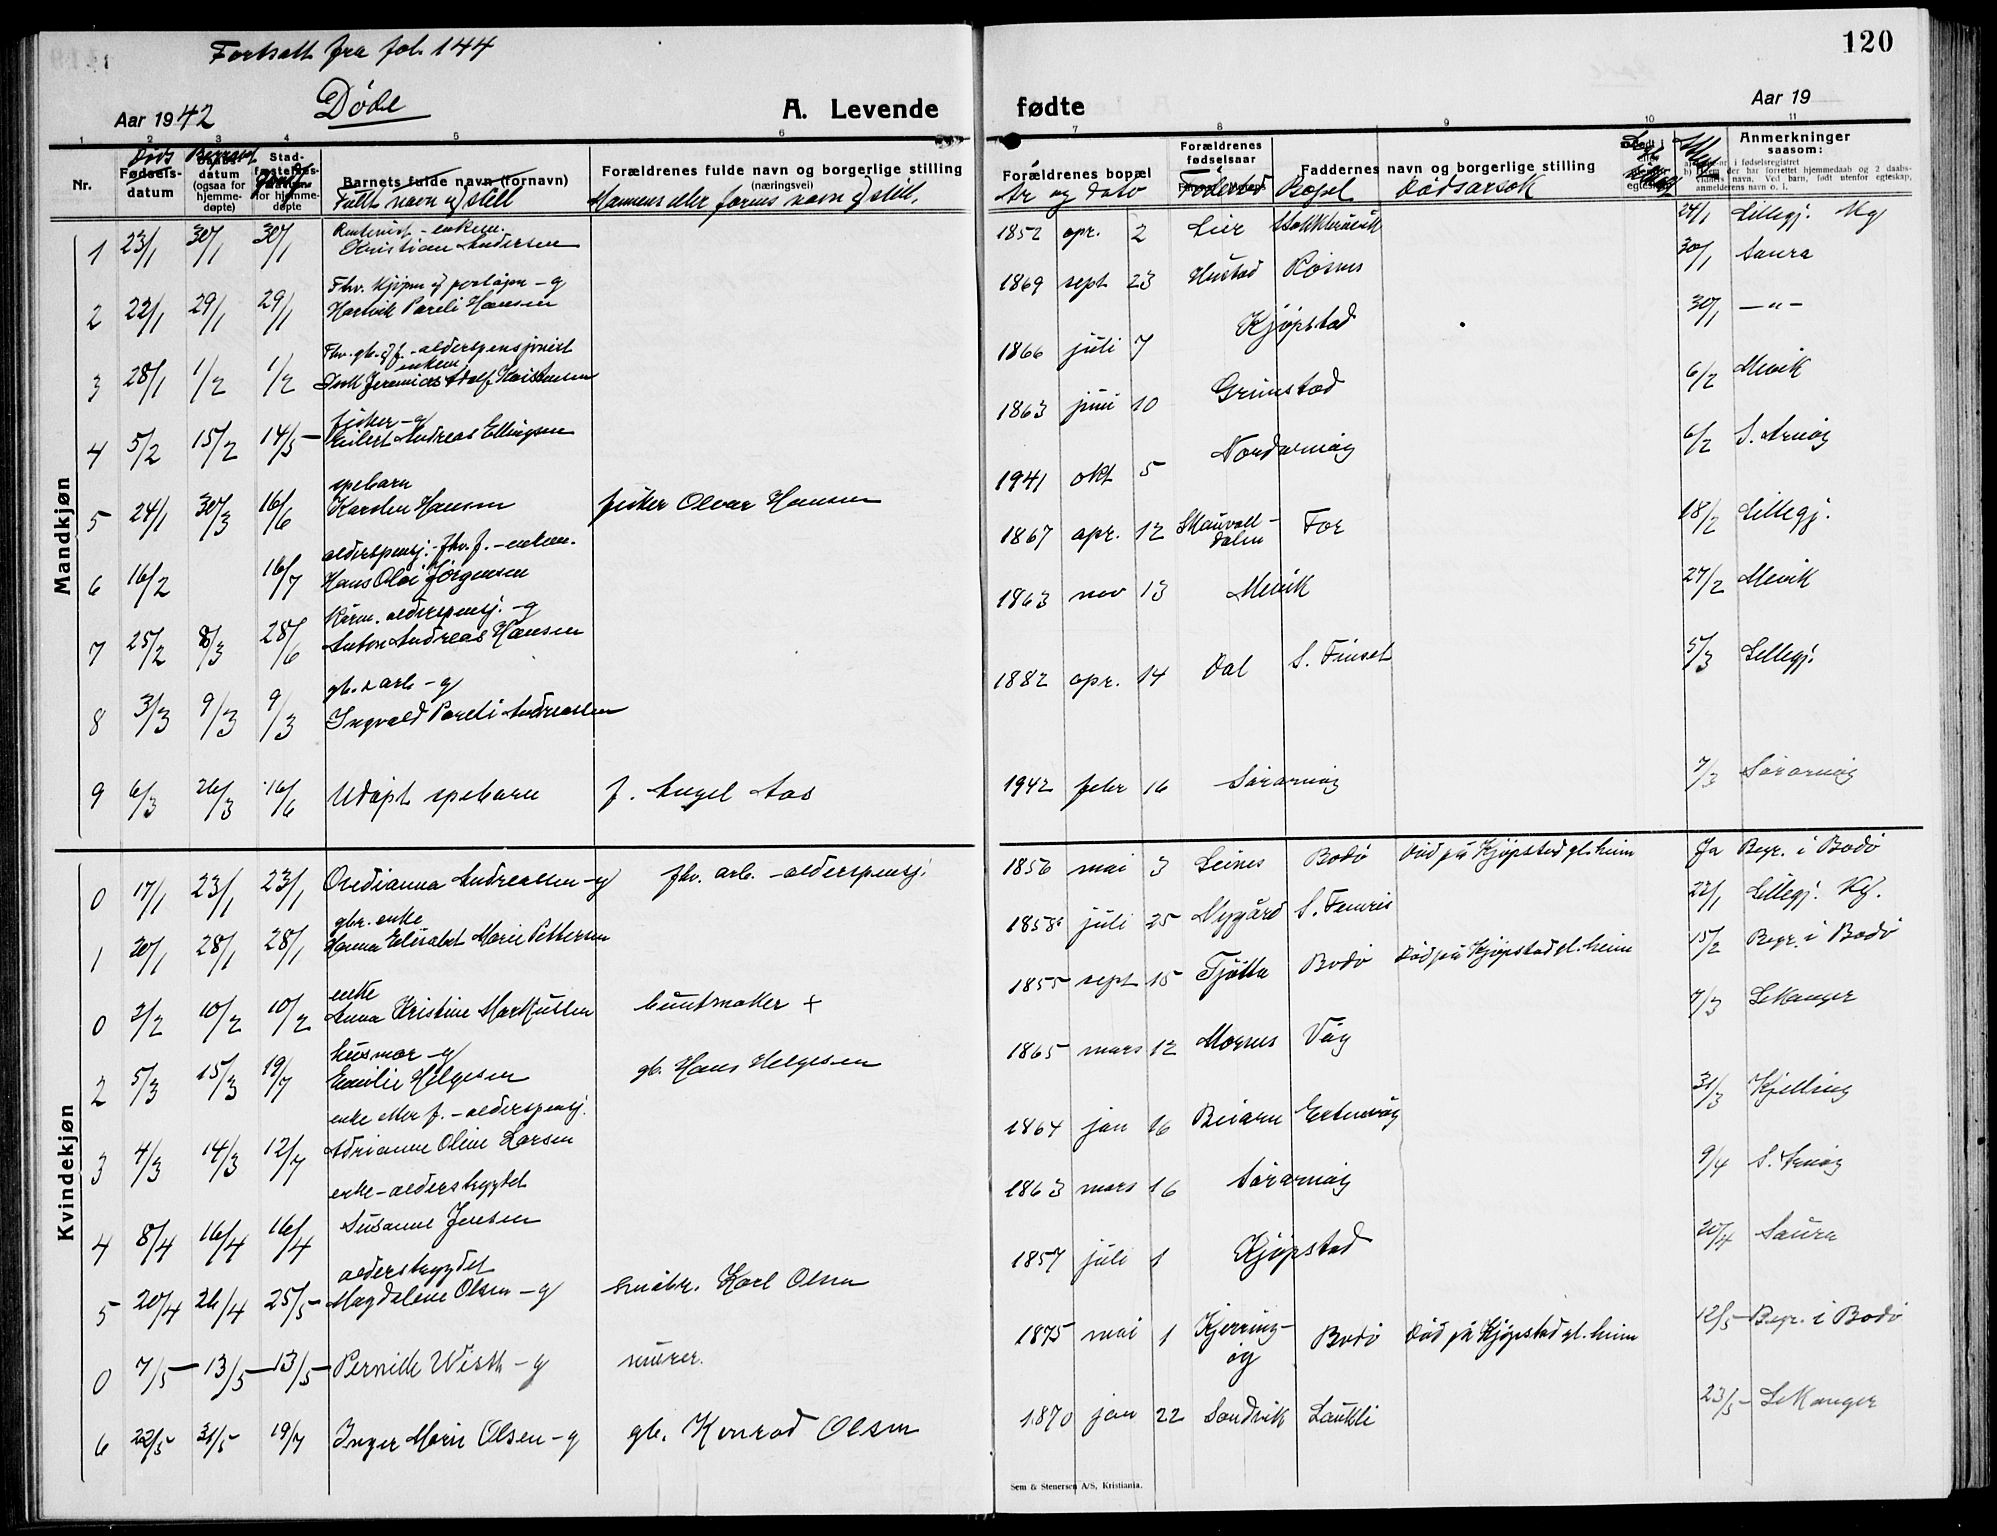 Fortsatt fra fol. 144
120
Aar 1942
Døde
A. Levende
fødte
Aar 19
1 2 3 4 5 6 7 8 9 10 11
Nr.
Døds
Fødsels-
datum
datum
(ogsaa for
hjemme-
døpte)
Stad-
for hjemme-
døpte
Barnets fulde navn (fornavn)
Fullt navn og still
Forældrenes fulde navn og borgerlige stilling
(næringsvei)
Mannens eller farens navn og still.
Forældrenes bopæl
År og dato
Forældrenes
fødselsaar
Fødested
Faddernes navn og borgerlige stilling
Bosted Dødsarsak
Anmerkninger
saasom:
Mandkjøn
1 23/1 30/1 30/1 Kristian Andersen 1852 apr. 2 Lier 24/1 Lillegj. Kg
Fhv. kjøpm. og poståpn. - g
2 22/1 29/1 29/1 Hartvik Pareli Hansen 1869 sept 23 Hustad Røsnes 30/1 Saura
Fhv. gb. og f. - alderspensjonist
enkem.
3 28/1 1/2 1/2 Jeremias Adolf Kristensen 1866 juli 7 Kjøpstad 30/1 -"-
fisker - g
4 5/2 15/2 14/5 Eilert Andreas Ellingsen 1863 juni 10 Grimstad 6/2 Mevik
spebarn
5 24/1 30/3 16/6 Karsten Hansen fisker Olvar Hansen 1941 okt 5 Nordarnøy 6/2 S. Arnøy
alderspensj. - fhv. f. - enkem.
6 16/2 16/7 Hans Olai Jørgensen 1867 apr. 12 Skauvoll-
dalen For 18/2 Lillegj.
alderspensj. - g
7 25/2 8/3 28/6 Anton Andreas Hansen 1863 nov 13 Mevik 27/2 Mevik
gb. s arb - g
8 3/3 9/3 9/3 Ingvald Pareli Andreassen 1882 apr. 14 Dal S. Finset 5/3 Lillegj.
9 6/3 26/3 16/6 Udøpt spebarn f. Angel Aas 1942 febr 16 Sørarnøy 7/3 Sørarnøy
Kvindekjøn
0 17/1 23/1 23/1 Ovedianna Andreassen - g fhv. arb. - alderspensj. 1856 mai 3 Leines Bodø Død på Kjøpstad gl.heim Ja Begr. i Bodø
gbr. enke
1 20/1 28/1 28/1 Hanna Elisabet Marie Pettersen 1858 juli 25 Nygård S. Femris 22/1 Lillegj. Kg.
enke
0 2/2 10/2 10/2 Anna Kristine Markussen buntmaker + 1855 sept 15 Tjøtta Bodø Død på Kjøpstad gl.heim 15/2 Begr. i Bodø
husmor - g
2 5/3 15/3 19/7 Emilie Helgesen gb. Hans Helgesen 1865 mars 12 Mornes Våg 7/3 Lekanger
enke etter f. - alderspensj.
3 4/3 14/3 12/7 Adrianne Oline Larsen 1864 jan 16 Beiarn Ertenvåg 31/3 Kjelling
enke - alderstrygdet
4 8/4 16/4 16/4 Susanne Jensen 1863 mars 16 Sørarnøy 9/4 S. Arnøy
alderstrygdet
5 20/4 26/4 25/5 Magdalene Olsen - g småbr. Karl Olsen 1857 juli 1 Kjøpstad 20/4 Saura
0 7/5 13/5 13/5 Pernille Wisth - g murer. 1875 mai 1 Kjerring-
øy Bodø Død på Kjøpstad gl.heim 12/5 Begr. i Bodø
6 22/5 31/5 19/7 Inger Marie Olsen - g gb. Konrad Olsen 1870 jan 22 Sandvik Laukli 23/5 Lekanger
Sem & Stenersen A/S, Kristiania.